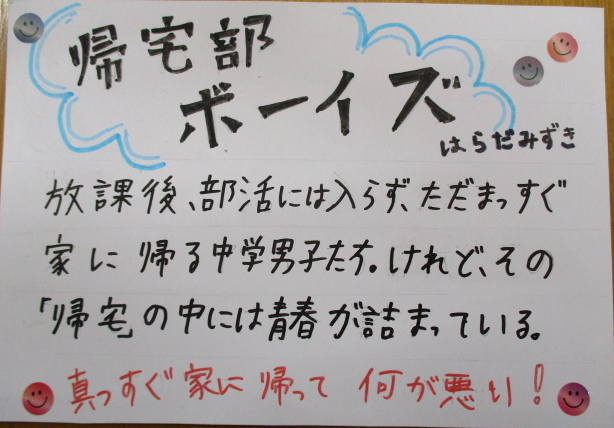 帰宅部
ボーイズ
はらだみずき
放課後、部活には入らず、ただまっすぐ
家に帰る中学男子たち。けれど、その
「帰宅」の中には青春が詰まっている。
真っすぐ家に帰って 何が悪い!